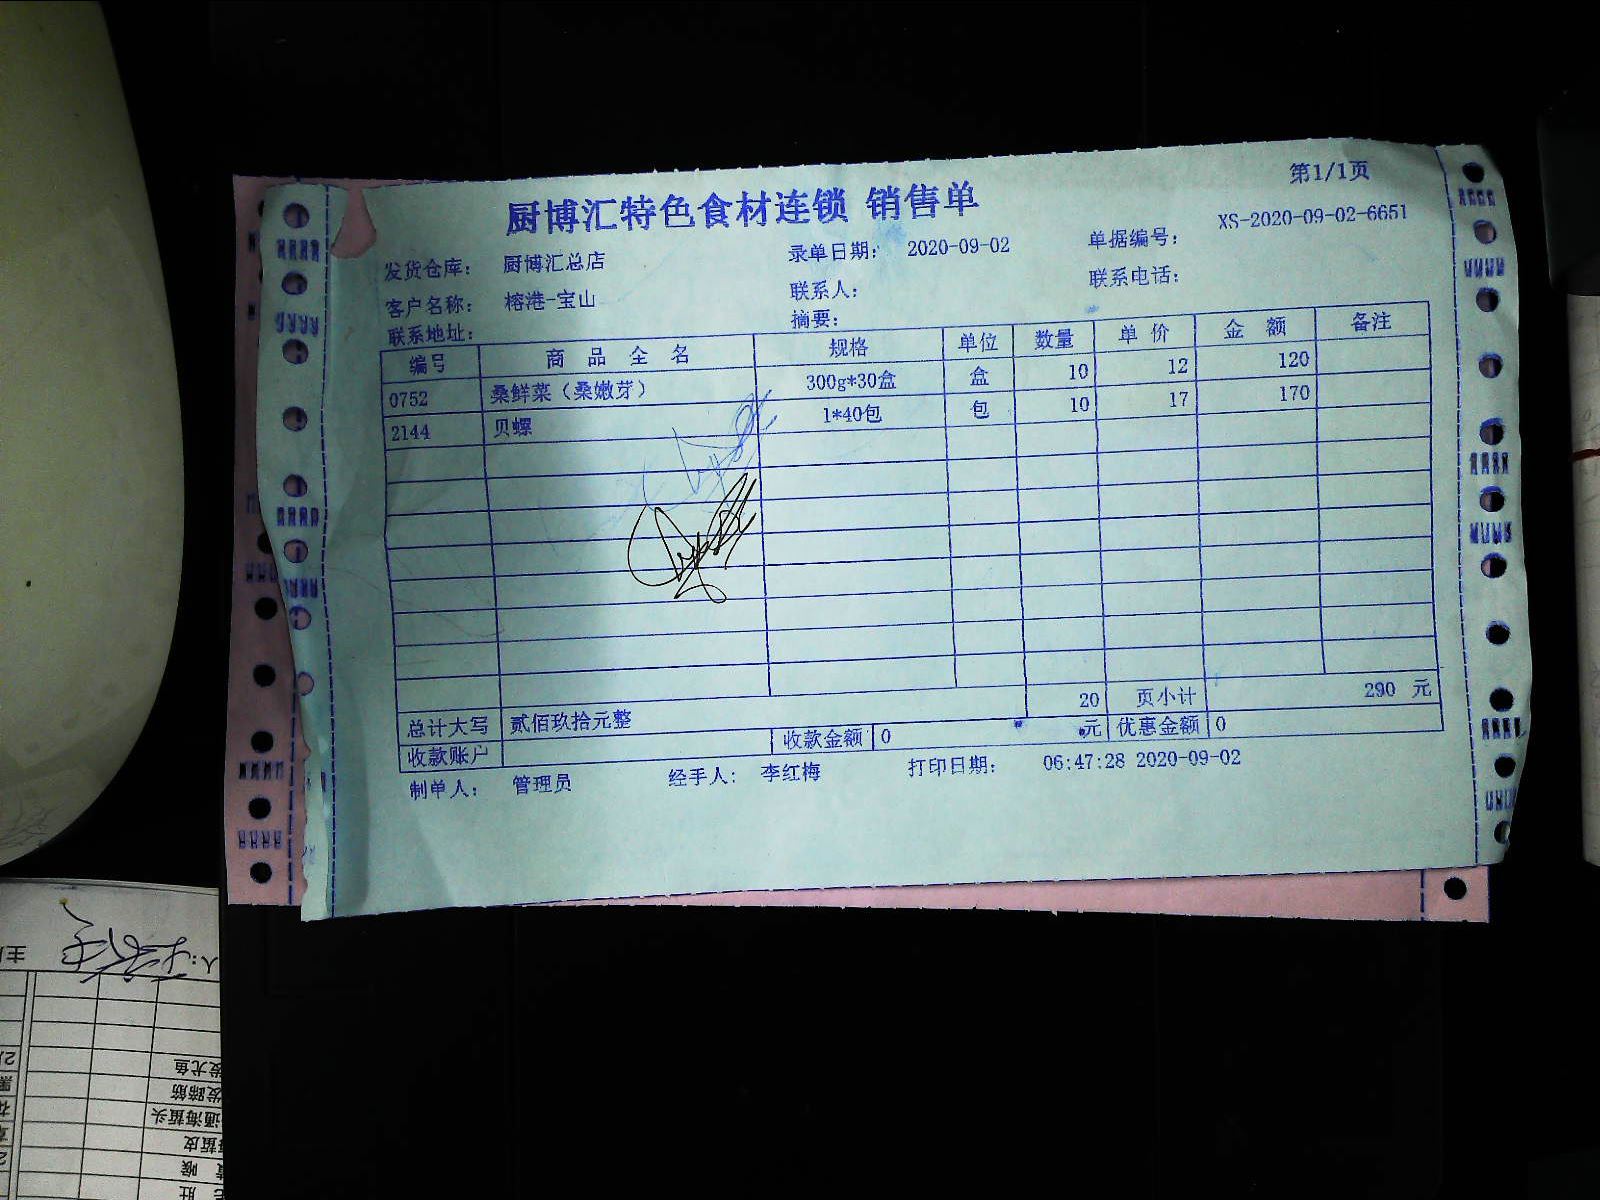 第1/1页
厨博汇特色食材连锁 销售单
发货仓库: 厨博汇总店 录单日期: 2020-09-02 单据编号: XS-2020-09-02-6651
客户名称: 榕港-宝山 联系人: 联系电话:
联系地址: 摘要:
编号 商品全名 规格 单位 数量 单价 金额 备注
0752 桑鲜菜（桑嫩芽） 300g*30盒 盒 10 12 120
2144 贝螺 1*40包 包 10 17 170
20 页小计 290 元
总计大写 贰佰玖拾元整
收款账户 收款金额 0 元 优惠金额 0
制单人: 管理员 经手人: 李红梅 打印日期: 06:47:28 2020-09-02
发尤鱼
发蹄筋
通海蜇头
蜇皮
喉
肚